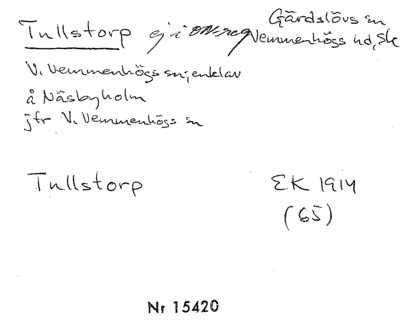 Tullstorp ej i om.reg Gärdslövs sn
Vemmenhögs hd, Sk
V. Vemmenhögs sn; enklav
å Näsbyholm
jfr V. Vemmenhögs sn
Tullstorp EK 1914
(65)
Nr 15420